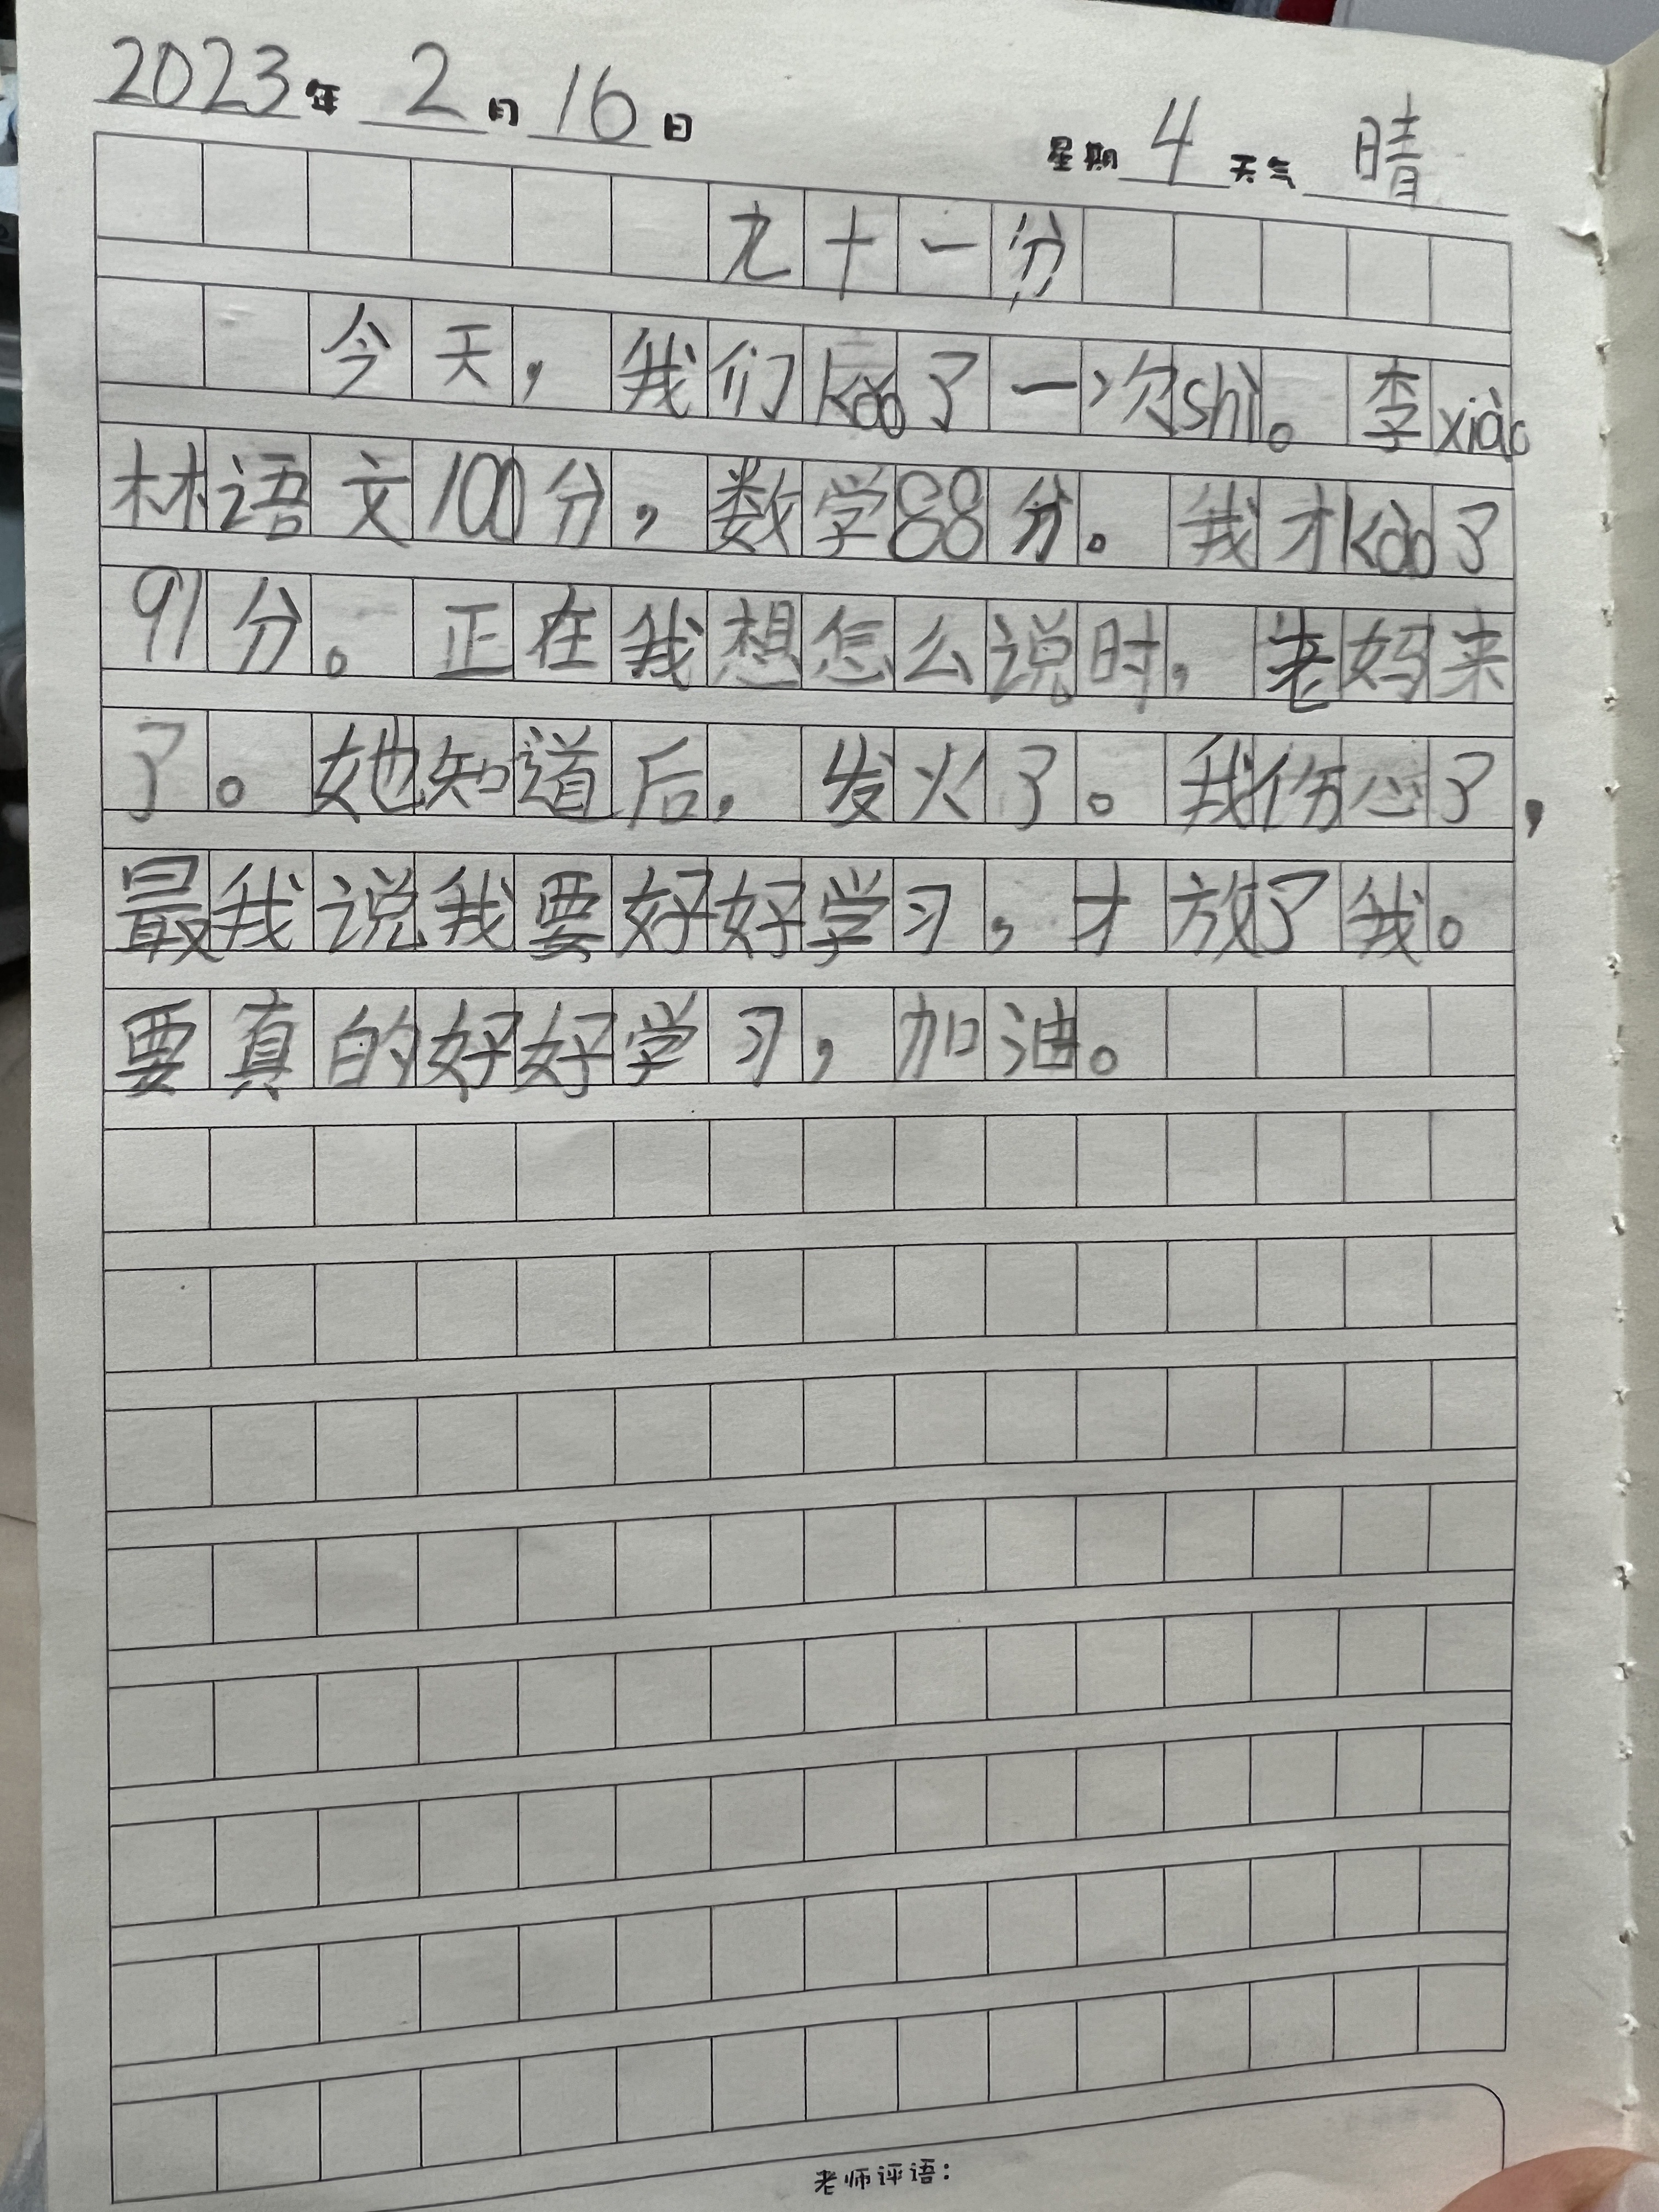 2023年 2月 16日 星期 4 天气 晴
九十一分
今天，我们kǎo了一次shì。李xiào
林语文100分，数学88分。我才kǎo了
91分。正在我想怎么说时，老妈来
了。她知道后，发火了。我伤心了，
最我说我要好好学习，才放了我。
要真的好好学习，加油。
老师评语：